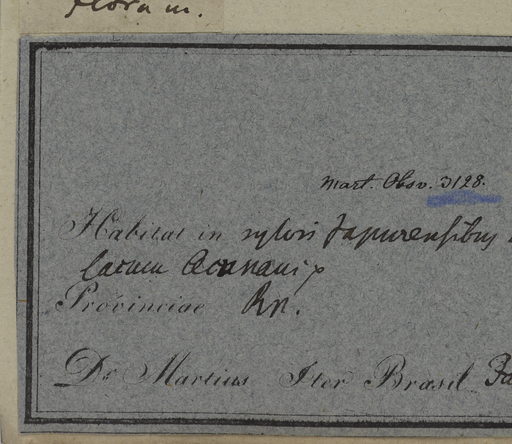 Flora m.
Mart. Obsv. 3128.
Habitat in sylvis Japurensibus
Provinciae Rn.
Dr. Martius Iter Brasil